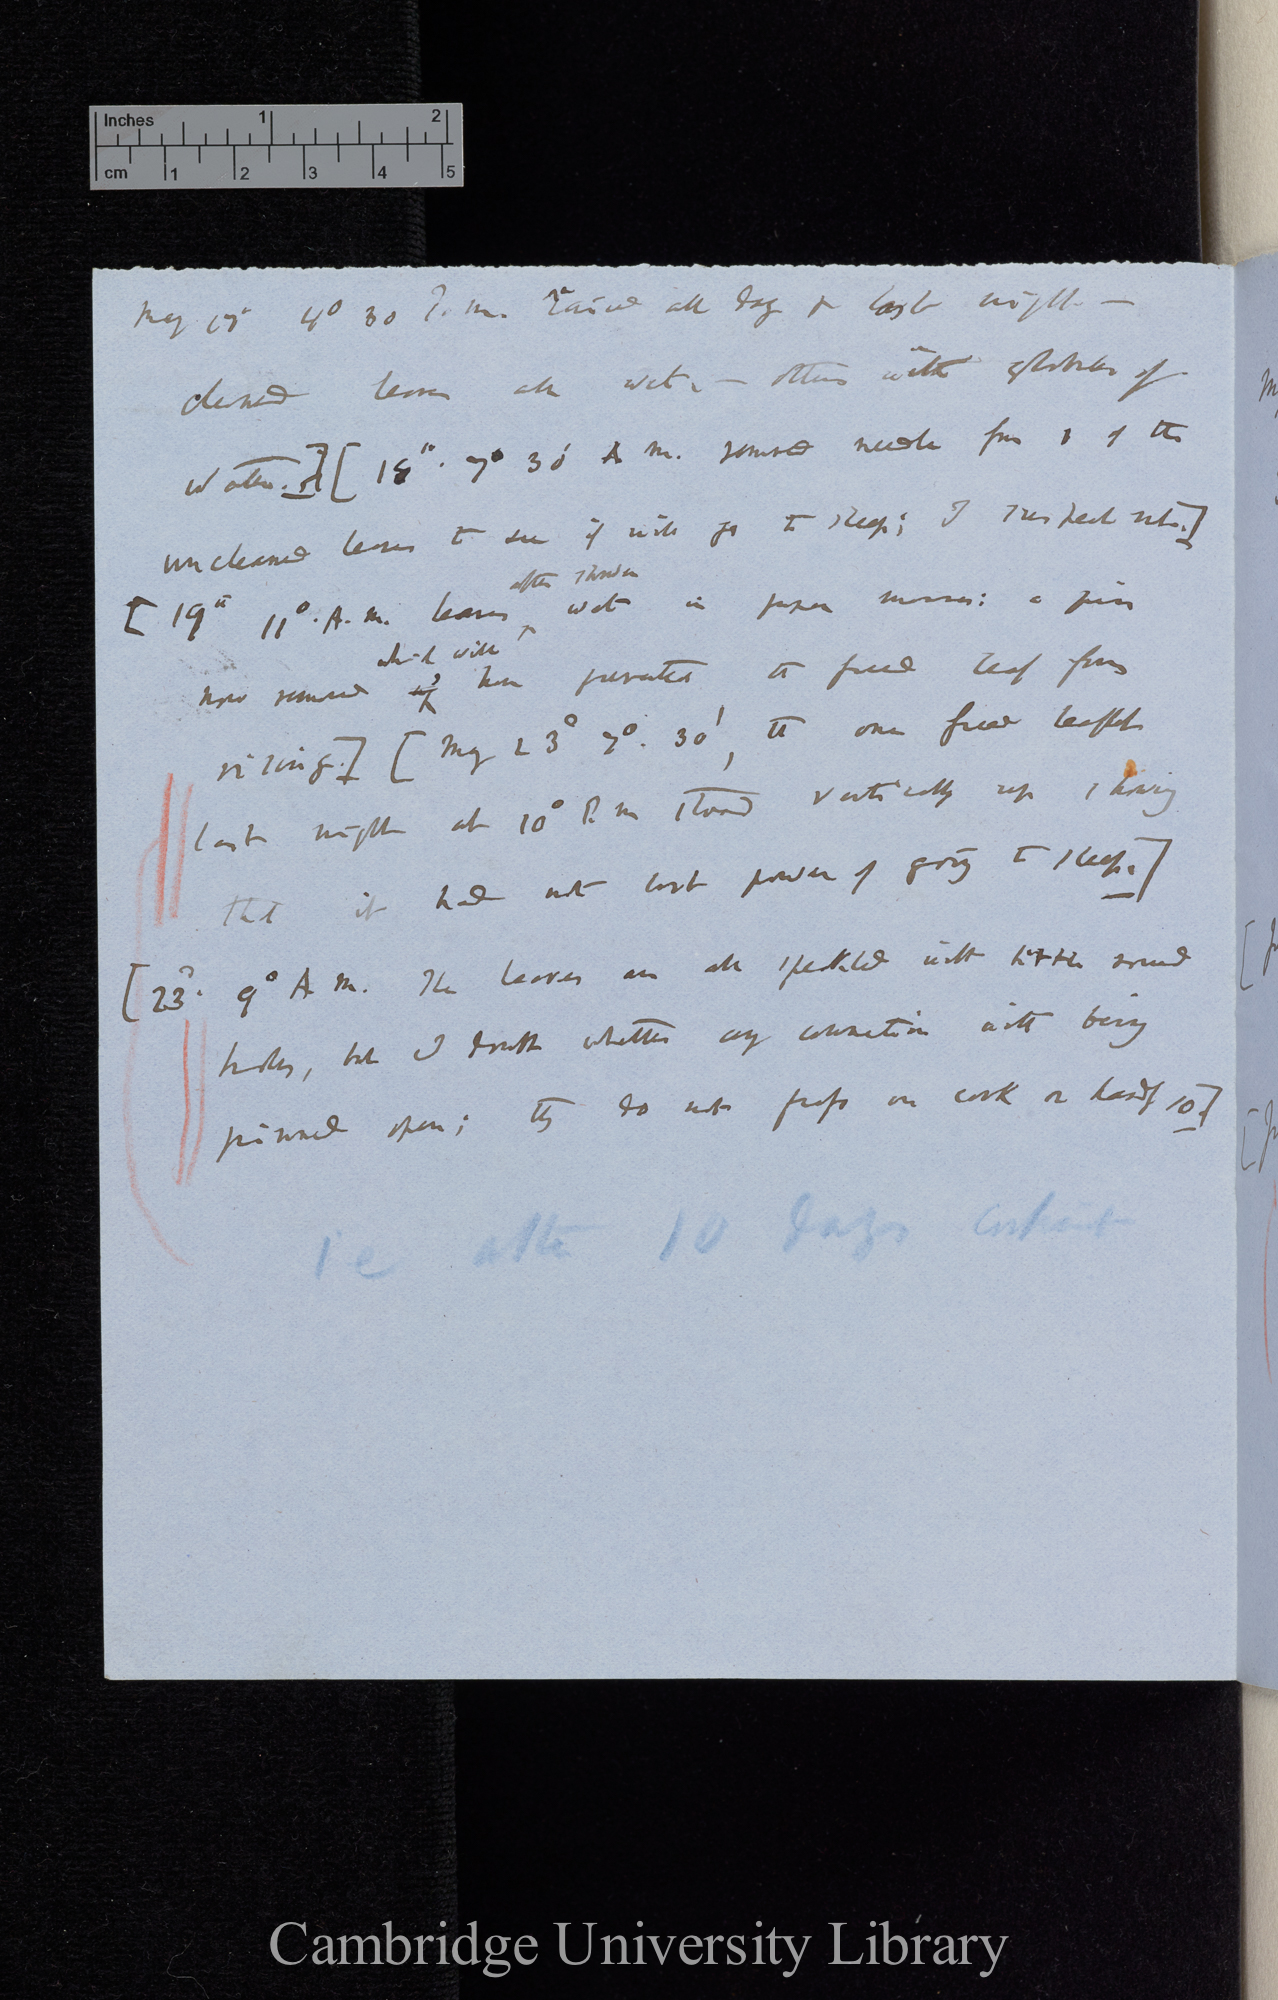 Inches 1 2
cm 1 2 3 4 5
May 17th 4° 30 P.m. Rained all day & last night —
cleaned leaves all wet. — others with globules of
water.] [18th. 7° 30' A m. removed needle from 1 of the
uncleaned leaves to see if will go to sleep; I suspect not.]
[19th 11°. A. m. leaves wet in proper manner: a pin
after shower
now removed have prevented the freed leaf from
which will
rising.] [May 23° 7°. 30', the one freed leaflet
last night at 10° P. m stood vertically up showing
that it had not lost power of going to sleep.]
[23d. 9° A. m. The leaves are all speckled with little round
holes, but I doubt whether any connection with being
pinned open; they do not seem on cork or hardly so.]
ie after 10 days
Cambridge University Library